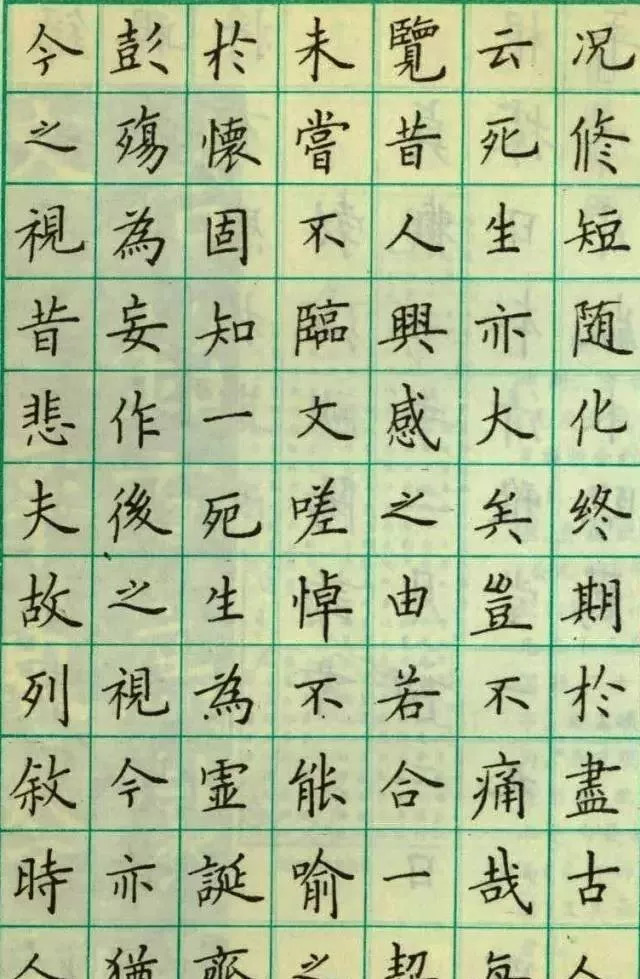 况修短随化终期於盡古人
云死生亦大矣豈不痛哉每
覽昔人興感之由若合一契
未嘗不臨文嗟悼不能喻之
於懷固知一死生為虛誕齊
彭殤為妄作後之視今亦猶
今之視昔悲夫故列敘時人